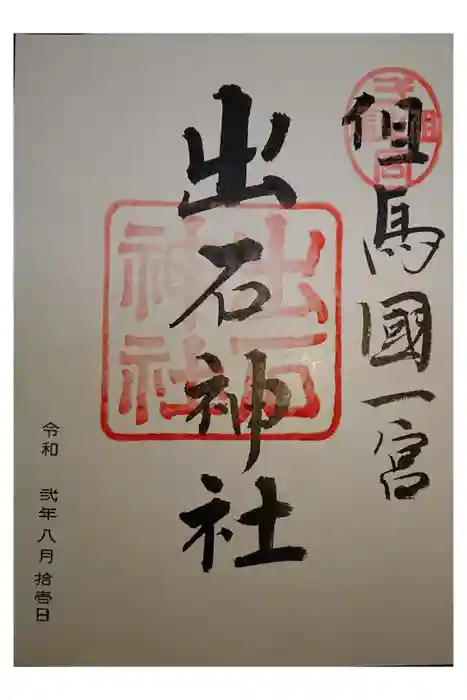 但馬國一宮
出石神社
出石神社
令和 弐年八月拾壱日